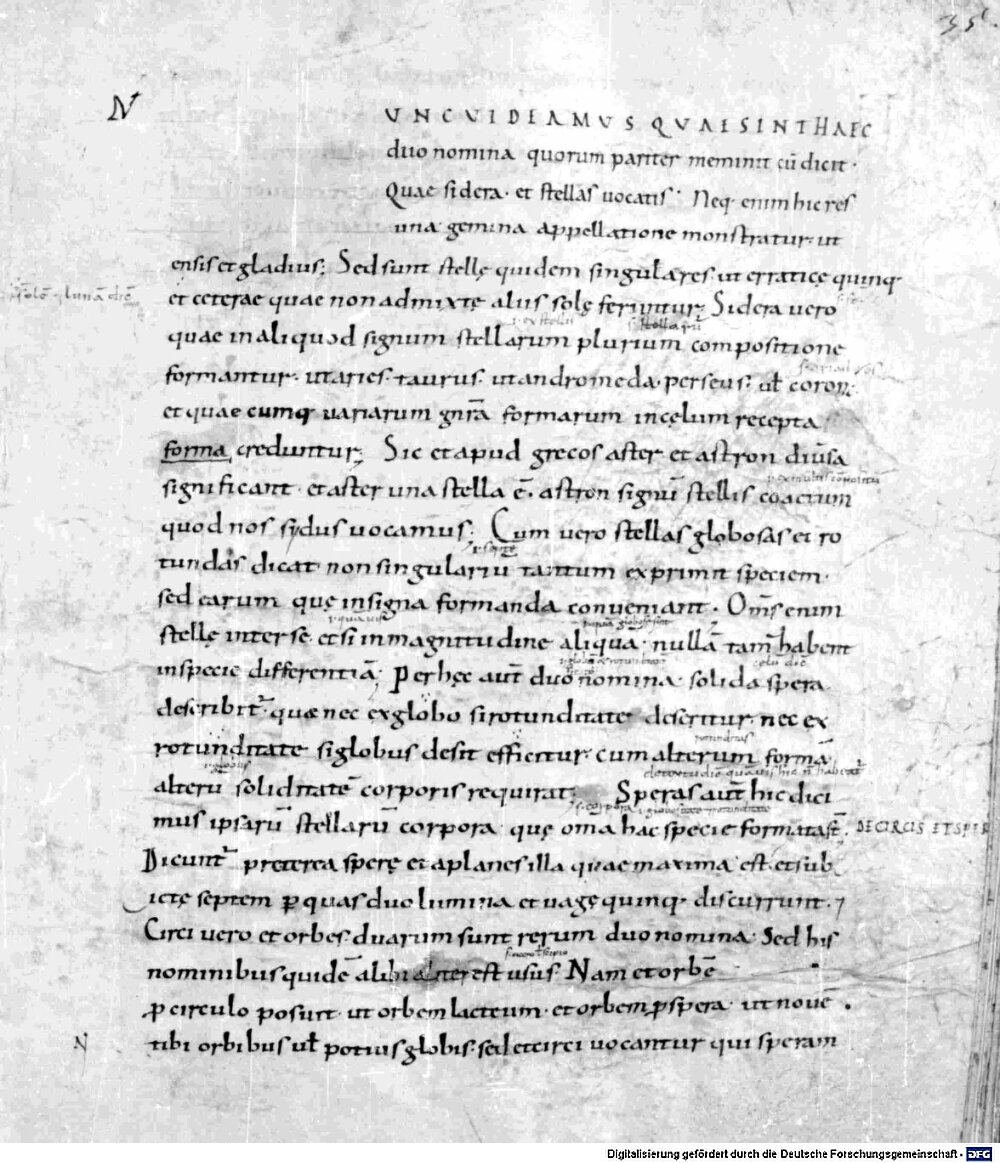 35
N
VNC VIDEAMVS QVAE SINT HAEC
duo nomina quorum pariter meminit cū dicit·
Quae sidera· et stellas uocatis· Neq· enim hic res
una gemina appellatione monstratur· ut
ensis et gladius; Sed sunt stellę quidem singulares· ut erraticę quinq·
et ceterae quae non admixtę aliis solę feruntur; Sidera uero
quae in aliquod signum stellarum plurium compositione
formantur· ut aries· taurus· ut andromeda· perseus· uł coron̄·
et quae cumq· uariarum gn̄ra formarum in cęlum recepta
forma creduntur; Sic et apud grecos aster et astron diuersa
significant· et aster una stella ē· astron signū stellis coactum
quod nos sydus uocamus; Cum uero stellas globosas et ro
tundas dicat· non singulariū tantum exprimit speciem·
sed earum quę in signa formanda conueniant· Om̄s enim
stellę inter se· etsi in magnitudine aliquā· nullā tam̄ habent
in specie differentiā; Per hęc aut̄ duo nomina· solida spera
describit᷑· quae nec ex globo si rotunditate deseritur· nec ex
rotunditate si globus desit efficitur· cum alterum formā
alterū soliditatē corporis requirat; Speras aut̄ hic dici
mus ipsarū stellarū corpora· quę om̄a hac specie formata st̄· DE CIRCIS ET SPER
Dicunt᷑ preterea sperę et aplanes illa quae maxima est· et sub
ictę septem ꝑ quas duo lumina et uagę quinq· discurrunt·
Circi uero et orbes· duarum sunt rerum duo nomina· Sed his
nominibus quidē alibi aliter est usus· Nam et orbē
ꝓ circulo posuit· ut orbem lacteum· et orbem ꝓ spera· ut nouē
N tibi orbibus uł potius globis· sed et circi uocantur qui speram
Digitalisierung gefördert durch die Deutsche Forschungsgemeinschaft - DFG